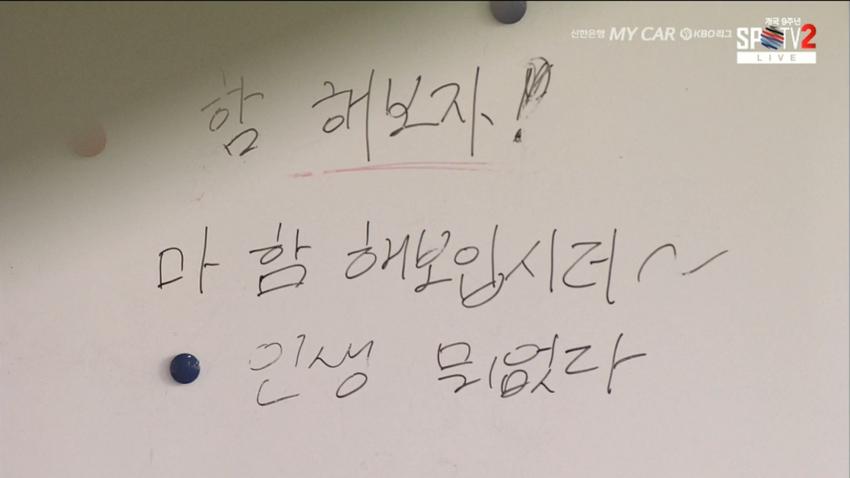 신한은행 MY CAR KBO 리그
개국 9주년
SPOTV2
LIVE
함 해보자!
마 함 해보입시더~
인생 뭐없다